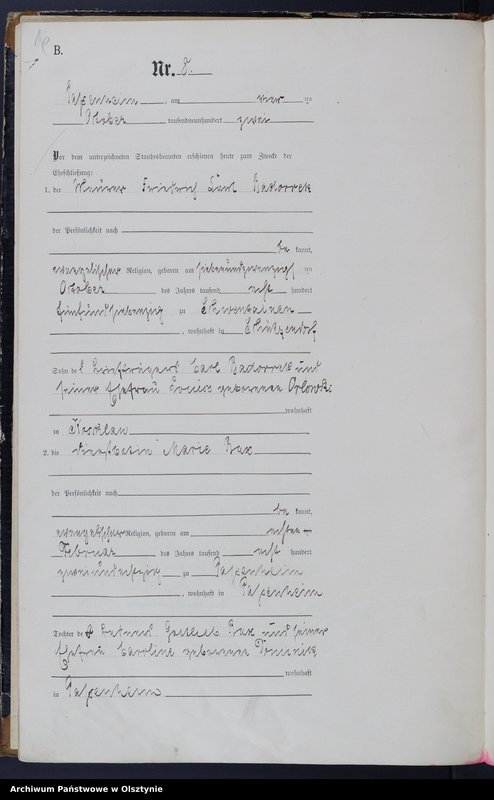 B.
Nr. 8.
Passenheim, am vier zu
Oktober tausendneunhundert zwei
Vor dem unterzeichneten Standesbeamten erschienen heute zum Zwecke der
Eheschließung:
1. der Maurer Friedrich Karl Badorrek
der Persönlichkeit nach
be kannt,
evangelischer Religion, geboren am siebenundzwanzigsten
Oktober des Jahres tausend acht hundert
fünfundsiebenzig zu Schwentainen
, wohnhaft in Schützendorf
Sohn des Carl Badorrek und
seiner Ehefrau Louise geborenen Orlowski
wohnhaft
in Koschlau
2. die Marie Bax
der Persönlichkeit nach
be kannt,
evangelischer Religion, geboren am achten
Februar des Jahres tausend acht hundert
zweiundachtzig zu Passenheim
, wohnhaft in Passenheim
Tochter des Gottlieb Bax und seiner
Ehefrau Caroline geborenen Dominik
wohnhaft
in Passenheim
Archiwum Państwowe w Olsztynie